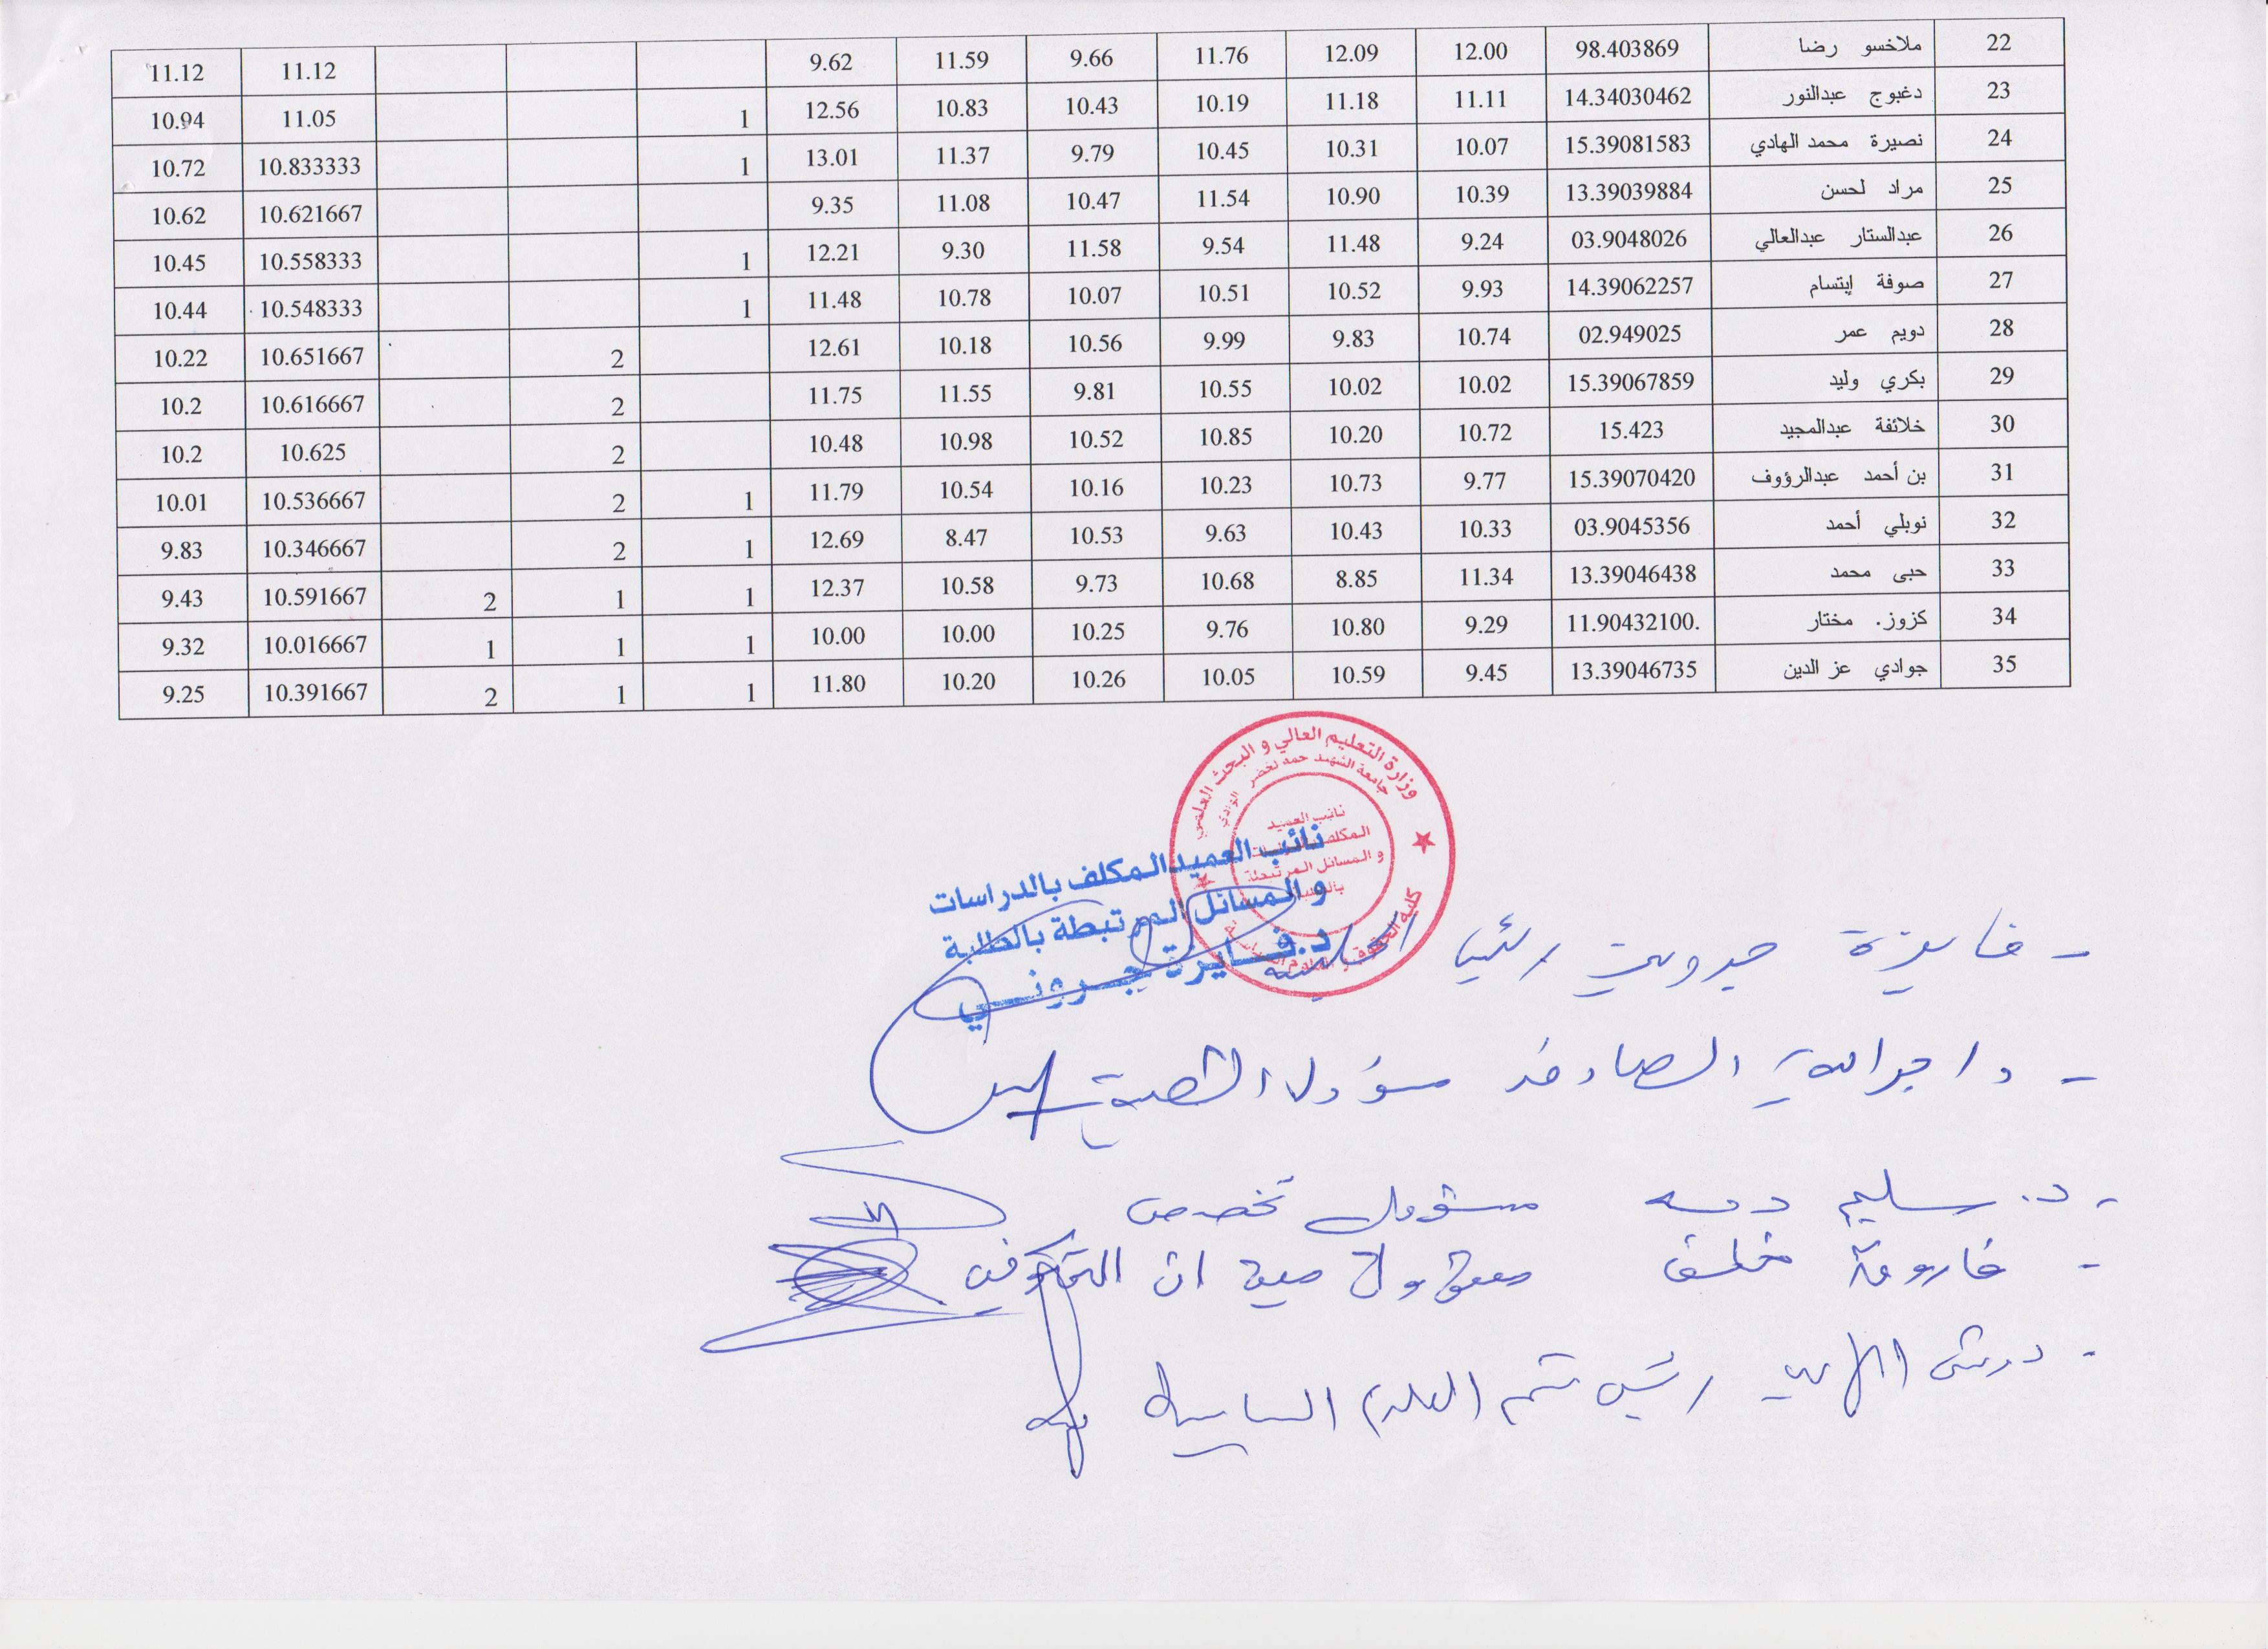 22 ملاخسو رضا 98.403869 12.00 12.09 11.76 9.66 11.59 9.62 11.12 11.12
23 دغبوج عبدالنور 14.34030462 11.11 11.18 10.19 10.43 10.83 12.56 1 11.05 10.94
24 نصيرة محمد الهادي 15.39081583 10.07 10.31 10.45 9.79 11.37 13.01 1 10.833333 10.72
25 مراد لحسن 13.39039884 10.39 10.90 11.54 10.47 11.08 9.35 10.621667 10.62
26 عبدالستار عبدالعالي 03.9048026 9.24 11.48 9.54 11.58 9.30 12.21 1 10.558333 10.45
27 صوفة إبتسام 14.39062257 9.93 10.52 10.51 10.07 10.78 11.48 1 10.548333 10.44
28 دويم عمر 02.949025 10.74 9.83 9.99 10.56 10.18 12.61 2 10.651667 10.22
29 بكري وليد 15.39067859 10.02 10.02 10.55 9.81 11.55 11.75 2 10.616667 10.2
30 خلائفة عبدالمجيد 15.423 10.72 10.20 10.85 10.52 10.98 10.48 2 10.625 10.2
31 بن أحمد عبدالرؤوف 15.39070420 9.77 10.73 10.23 10.16 10.54 11.79 1 2 10.536667 10.01
32 نوبلي أحمد 03.9045356 10.33 10.43 9.63 10.53 8.47 12.69 1 2 10.346667 9.83
33 حبى محمد 13.39046438 11.34 8.85 10.68 9.73 10.58 12.37 1 1 2 10.591667 9.43
34 كزوز. مختار 11.90432100. 9.29 10.80 9.76 10.25 10.00 10.00 1 1 1 10.016667 9.32
35 جوادي عز الدين 13.39046735 9.45 10.59 10.05 10.26 10.20 11.80 1 1 2 10.391667 9.25
وزارة التعليم العالي و البحث العلمي
جامعة الشهيد حمه لخضر الوادي
نائب العميد
المكلف
و المسائل المرتبطة
كلية الحقوق و العلوم
نائب العميد المكلف بالدراسات
و المسائل المرتبطة بالطلبة
د. فــايزة جــرونــي
- فايزة جروني رئيس
- الصادق مسؤول الشعبة
- د. سليم مسؤول تخصص
- فاروق خلف مسؤول ميدان التكوين
- رئيس قسم العلوم السياسية